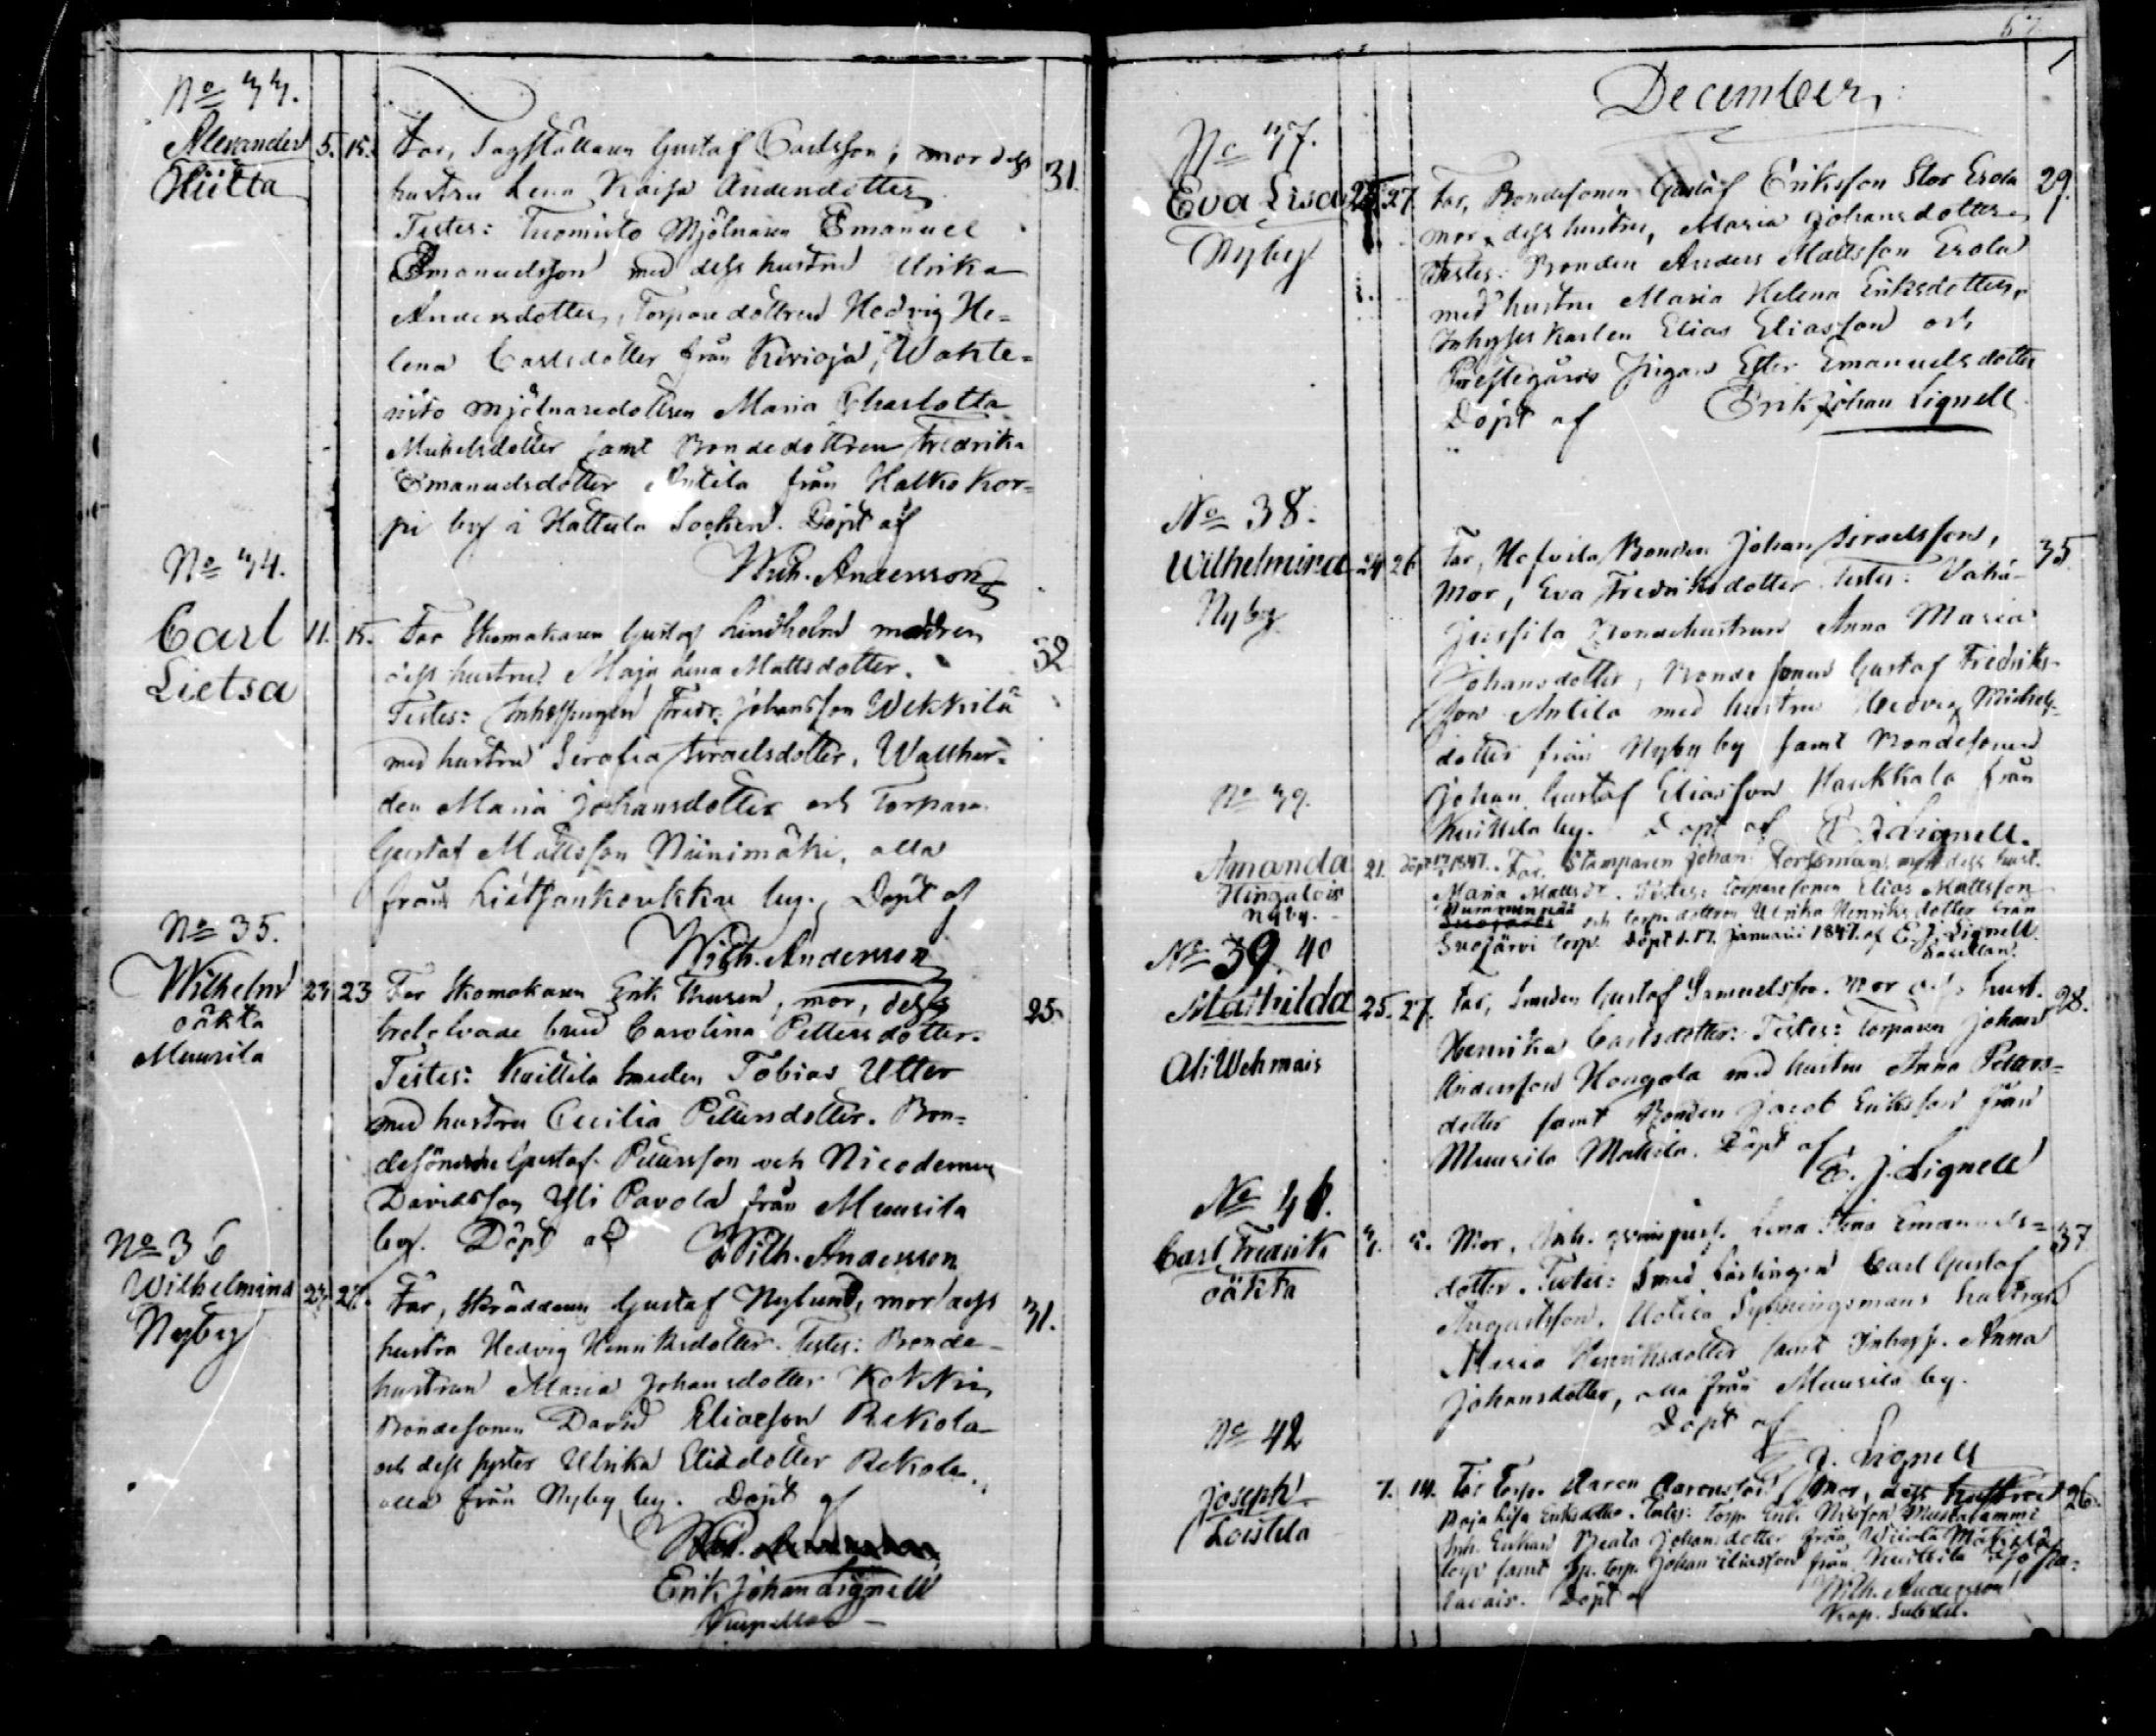 No 33.
Alexander 5. 15. Far, Gustaf Carlsson, mor dess 31.
Hütta hustru Lena Kaisa Andersdotter
Testes: Tuomisto Mjölnaren Emanuel
Emanuelsson med dess hustru Ulrika
Andersdotter, Torparedottren Hedvig He=
lena Carlsdotter från Kivioja, Wahte=
risto mjölnaredottren Maria Charlotta
Michelsdotter samt Bondedottren Fredrika
Emanuelsdotter Antila från Halkokor=
pi by i Hattula Socken. Döpt af
Wilh. Andersson
No 34.
Carl 11. 15. Far Skomakaren Gustaf Lindholm modren 32
Lietsa dess hustru Maja Lena Mattsdotter.
Testes: Fredr. Johansson Wekkilä
med hustru Serafia Israelsdotter,
Maria Johansdotter och Torparen
Gustaf Mattsson Niinimäki, alla
från by. Döpt af
Wilh. Andersson
No 35.
Wilhelm 23 23 Far Skomakaren Erik mor, dess 25.
oäkta trolofvade brud Carolina Pettersdotter.
Muursila Testes: Kuittila Smeden Tobias Utter
med hustru Cecilia Pettersdotter. Bon=
desönerne Gustaf Pettersson och Nicodemus
Davidsson Yli Pavola från Muursila
by. Döpt af Wilh. Andersson
No 36
Wilhelmina 23. 27. Far, Skräddaren Gustaf Nylund, mor dess 31.
Nyby hustru Hedvig Henriksdotter. Testes: Bonde-
hustrun Maria Johansdotter Kokki,
Bondesonen David Eliasson Rekola
och dess syster Ulrika Eliedotter Rekola,
alla från Nyby by. Döpt af
Erik Johan Lignell
Capellan
57
December,
No 37.
Eva Lisa 25 27 Far, Bondesonen Gustaf Eriksson Stor Erola 29.
Nyby mor dess hustru, Maria Johansdotter
Testes: Bonden Anders Mattsson Erola
med hustru Maria Helena Eriksdotter,
Inhyses karlen Elias Eliasson och
Prestegårds Pigan Ester Emanuelsdotter
Döpt af Erik Johan Lignell
No 38.
Wilhelmina 24 26 Far, Bonden Johan Israelsson, 35
Nyby Mor, Eva Fredriksdotter Testes:
Jussila Bondehustrun Anna Maria
Johansdotter, Bonde sonen Gustaf Fredriks-
son Antila med hustru Hedvig Michels-
dotter från Nyby by samt Bondesonen
Johan Gustaf Eliasson Haukkala från
Kuittila by. Döpt af E. J. Lignell.
No 39.
Amanda 21. Döpt 17/1 1847. Far, Stamparen Johan Forssman, mor dess hust.
Hingalois Maria Mattsdr. Testes: Torparesonen Elias Mattsson
Nyby. Nummenpää och torp. dottren Ulrika Henriksdotter från
Suojärvi torp. Döpt d. 17. Januari 1847. af E. J. Lignell
Capellan.
No 39. 40
Mathilda 25. 27. Far, Smeden Gustaf Samuelsson. Mor d. hust. 28.
Ali Wehmais Henrika Carlsdotter: Testes: Torparen Johan
Andersson Hongola med hustru Anna Petters=
dotter samt Bonden Jacob Eriksson från
Muursila Mattila. Döpt af
E. J. Lignell
No 41.
Carl Fredrik Mor, Inh. qvinspers. Lena Stina Emanuels= 37
oäkta dotter. Testes: Smed Lärlingen Carl Gustaf
Augustsson, Uotila hustrun
Maria Henriksdotter samt Inhys. Anna
Johansdotter, alla från Muursila by.
Döpt af
J. Lignell
No 42
Joseph 7. 14. Far Torp. Aaron Aaronsson Mor, dess hustru 26.
Loistila Maja Lisa Eriksdotter. Testes: Torp. Erik Nilsson Mustalammi
Inh. Enkan Beata Johansdotter från Mäkilä
torp samt torp. Johan Eliasson från Kuittila
Döpt af Wilh. Andersson
Kap. Substit.